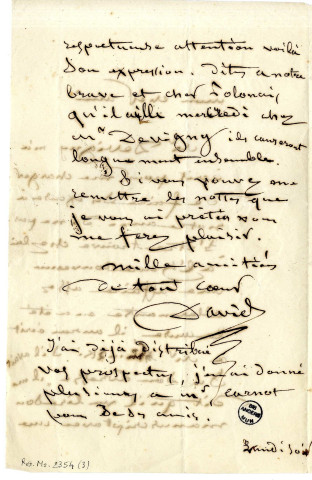 respectueuse attention voilà
son expression. Dites a notre
brave et cher Polonais
qu'il aille mercredi chez
mr Devigny ils causeront
longuement ensemble.
Si vous pouvez me
remettre les nottes que
je vous ai prêtées vous
me ferez plaisir.
mille amitiés
de tout cœur
David
J'ai déjà distribué
vos prospectus, j'en ai donné
plusieurs a mr carnot
pour de ses amis.
Lundi soir
Rés. Ms. 2354 (3)